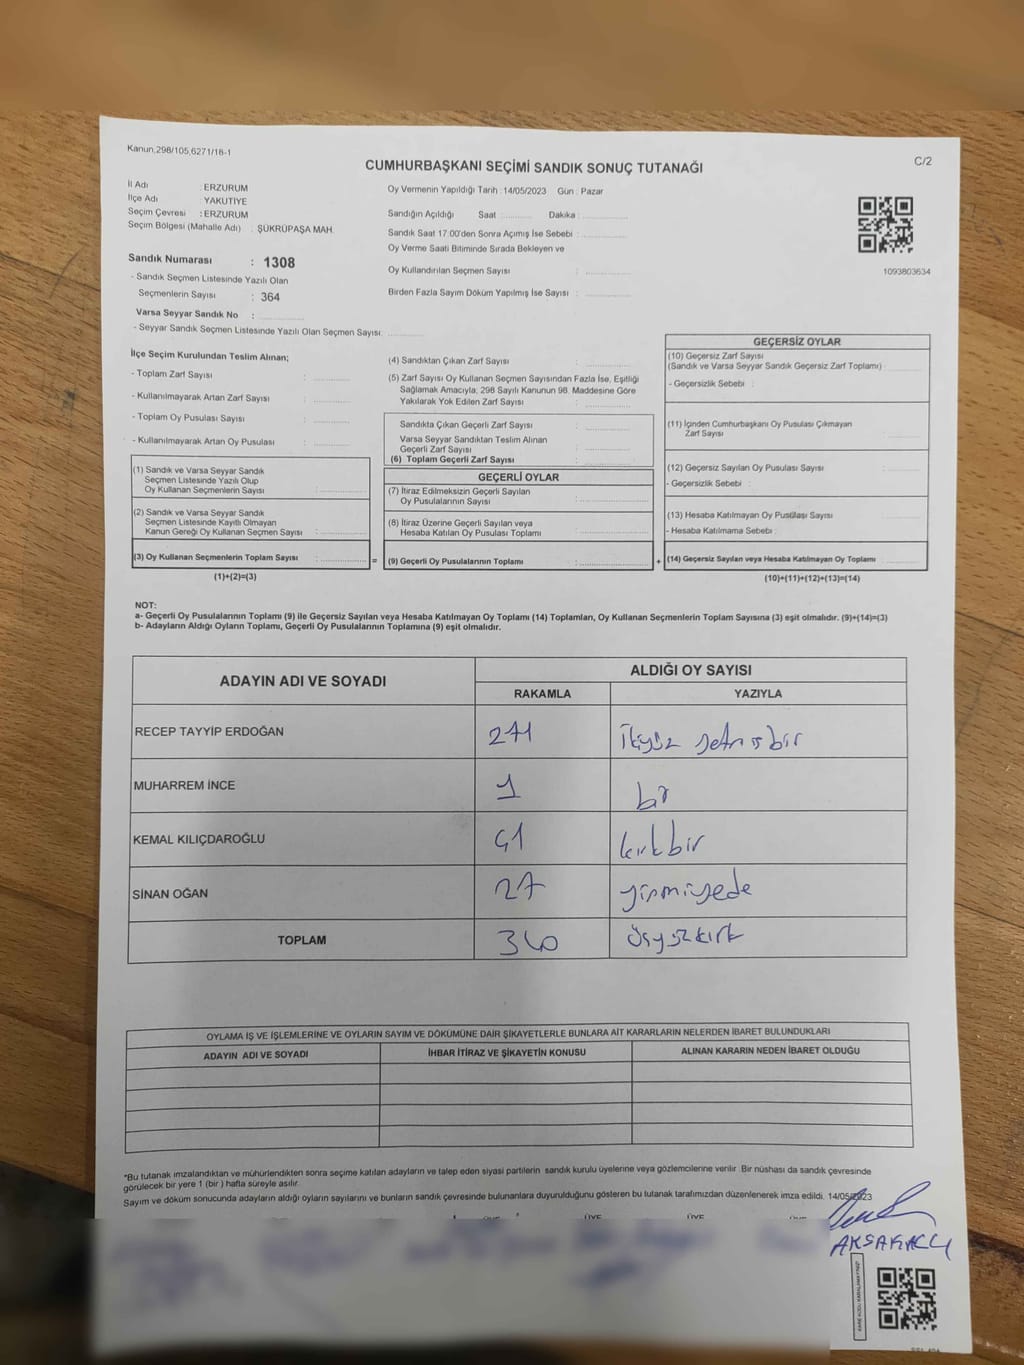 Kanun,298/105,6271/18-1
CUMHURBAŞKANI SEÇİMİ SANDIK SONUÇ TUTANAĞI
C/2
İl Adı : ERZURUM
İlçe Adı : YAKUTİYE
Seçim Çevresi : ERZURUM
Seçim Bölgesi (Mahalle Adı) : ŞÜKRÜPAŞA MAH.
Sandık Numarası : 1308
- Sandık Seçmen Listesinde Yazılı Olan
Seçmenlerin Sayısı : 364
Varsa Seyyar Sandık No :
- Seyyar Sandık Seçmen Listesinde Yazılı Olan Seçmen Sayısı:
Oy Vermenin Yapıldığı Tarih : 14/05/2023 Gün : Pazar
Sandığın Açıldığı Saat Dakika
Sandık Saat 17:00'den Sonra Açımış İse Sebebi :
Oy Verme Saati Bitiminde Sırada Bekleyen ve
Oy Kullandırılan Seçmen Sayısı :
Birden Fazla Sayım Döküm Yapılmış İse Sayısı :
1093803634
İlçe Seçim Kurulundan Teslim Alınan;
- Toplam Zarf Sayısı :
- Kullanılmayarak Artan Zarf Sayısı :
- Toplam Oy Pusulası Sayısı :
- Kullanılmayarak Artan Oy Pusulası :
(1) Sandık ve Varsa Seyyar Sandık
Seçmen Listesinde Yazılı Olup
Oy Kullanan Seçmenlerin Sayısı :
(2) Sandık ve Varsa Seyyar Sandık
Seçmen Listesinde Kayıtlı Olmayan
Kanun Gereği Oy Kullanan Seçmen Sayısı :
(3) Oy Kullanan Seçmenlerin Toplam Sayısı : =
(1)+(2)=(3)
(4) Sandıktan Çıkan Zarf Sayısı :
(5) Zarf Sayısı Oy Kullanan Seçmen Sayısından Fazla İse, Eşitliği
Sağlamak Amacıyla, 298 Sayılı Kanunun 98. Maddesine Göre
Yakılarak Yok Edilen Zarf Sayısı :
Sandıkta Çıkan Geçerli Zarf Sayısı :
Varsa Seyyar Sandıktan Teslim Alınan
Geçerli Zarf Sayısı :
(6) Toplam Geçerli Zarf Sayısı :
GEÇERLİ OYLAR
(7) İtiraz Edilmeksizin Geçerli Sayılan
Oy Pusulalarının Sayısı :
(8) İtiraz Üzerine Geçerli Sayılan veya
Hesaba Katılan Oy Pusulası Toplamı :
(9) Geçerli Oy Pusulalarının Toplamı : +
GEÇERSİZ OYLAR
(10) Geçersiz Zarf Sayısı
(Sandık ve Varsa Seyyar Sandık Geçersiz Zarf Toplamı) :
- Geçersizlik Sebebi :
(11) İçinden Cumhurbaşkanı Oy Pusulası Çıkmayan
Zarf Sayısı :
(12) Geçersiz Sayılan Oy Pusulası Sayısı :
- Geçersizlik Sebebi :
(13) Hesaba Katılmayan Oy Pusulası Sayısı :
- Hesaba Katılmama Sebebi :
(14) Geçersiz Sayılan veya Hesaba Katılmayan Oy Toplamı :
(10)+(11)+(12)+(13)=(14)
NOT:
a- Geçerli Oy Pusulalarının Toplamı (9) ile Geçersiz Sayılan veya Hesaba Katılmayan Oy Toplamı (14) Toplamları, Oy Kullanan Seçmenlerin Toplam Sayısına (3) eşit olmalıdır. (9)+(14)=(3)
b- Adayların Aldığı Oyların Toplamı, Geçerli Oy Pusulalarının Toplamına (9) eşit olmalıdır.
ADAYIN ADI VE SOYADI
ALDIĞI OY SAYISI
RAKAMLA YAZIYLA
RECEP TAYYİP ERDOĞAN 271 ikiyüz yetmişbir
MUHARREM İNCE 1 bir
KEMAL KILIÇDAROĞLU 41 kırkbir
SİNAN OĞAN 27 yirmiyede
TOPLAM 340 üçyüzkırk
OYLAMA İŞ VE İŞLEMLERİNE VE OYLARIN SAYIM VE DÖKÜMÜNE DAİR ŞİKAYETLERLE BUNLARA AİT KARARLARIN NELERDEN İBARET BULUNDUKLARI
ADAYIN ADI VE SOYADI İHBAR İTİRAZ VE ŞİKAYETİN KONUSU ALINAN KARARIN NEDEN İBARET OLDUĞU
*Bu tutanak imzalandıktan ve mühürlendikten sonra seçime katılan adayların ve talep eden siyasi partilerin sandık kurulu üyelerine veya gözlemcilerine verilir. Bir nüshası da sandık çevresinde
görülecek bir yere 1 (bir) hafta süreyle asılır.
Sayım ve döküm sonucunda adayların aldığı oyların sayılarını ve bunların sandık çevresinde bulunanlara duyurulduğunu gösteren bu tutanak tarafımızdan düzenlenerek imza edildi. 14/05/2023
AKSAKALLI